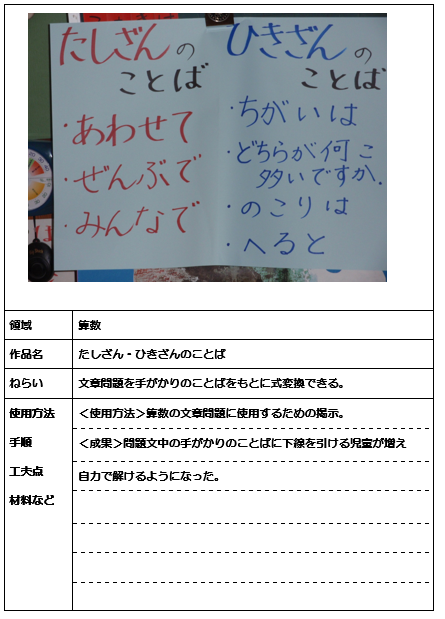 たしざんの
ことば
・あわせて
・ぜんぶで
・みんなで
ひきざんの
ことば
・ちがいは
・どちらが何こ
多いですか.
・のこりは
・へると
領域 算数
作品名 たしざん・ひきざんのことば
ねらい 文章問題を手がかりのことばをもとに式変換できる。
使用方法 ＜使用方法＞算数の文章問題に使用するための掲示。
手順 ＜成果＞問題文中の手がかりのことばに下線を引ける児童が増え
工夫点 自力で解けるようになった。
材料など